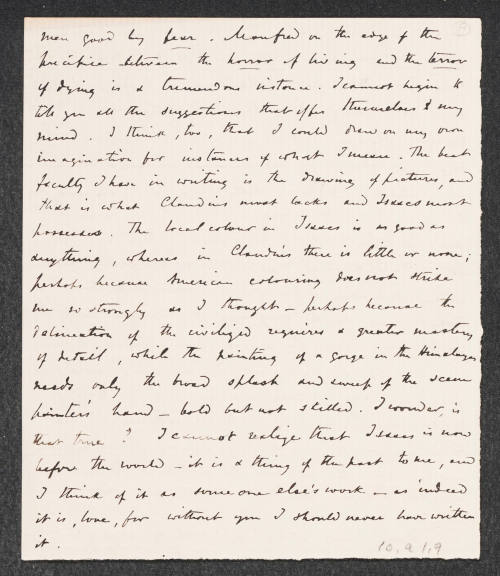 men good by fear. Manfred on the edge of the
precipice between the horror of living and the terror
of dying is a tremendous instance. I cannot begin to
tell you all the suggestions that offer themselves to my
mind. I think, too, that I could draw on my own
imagination for instances of what I mean. The best
faculty I have in writing is the drawing of pictures, and
that is what Claudius most lacks and Isaacs most
possesses. The local colour in Isaacs is as good as
anything, whereas in Claudius there is little or none;
perhaps because American colouring does not strike
me so strongly as I thought – perhaps because the
delineation of the civilized requires a greater mastery
of detail, while the painting of a gorge in the Himalayas
needs only the broad splash and sweep of the scene
painter's hand – bold but not stilted. I wonder, is
that true? I cannot realize that Isaacs is now
before the world – it is a thing of the past to me, and
I think of it as some one else's work – as indeed
it is, love, for without you I should never have written
it.